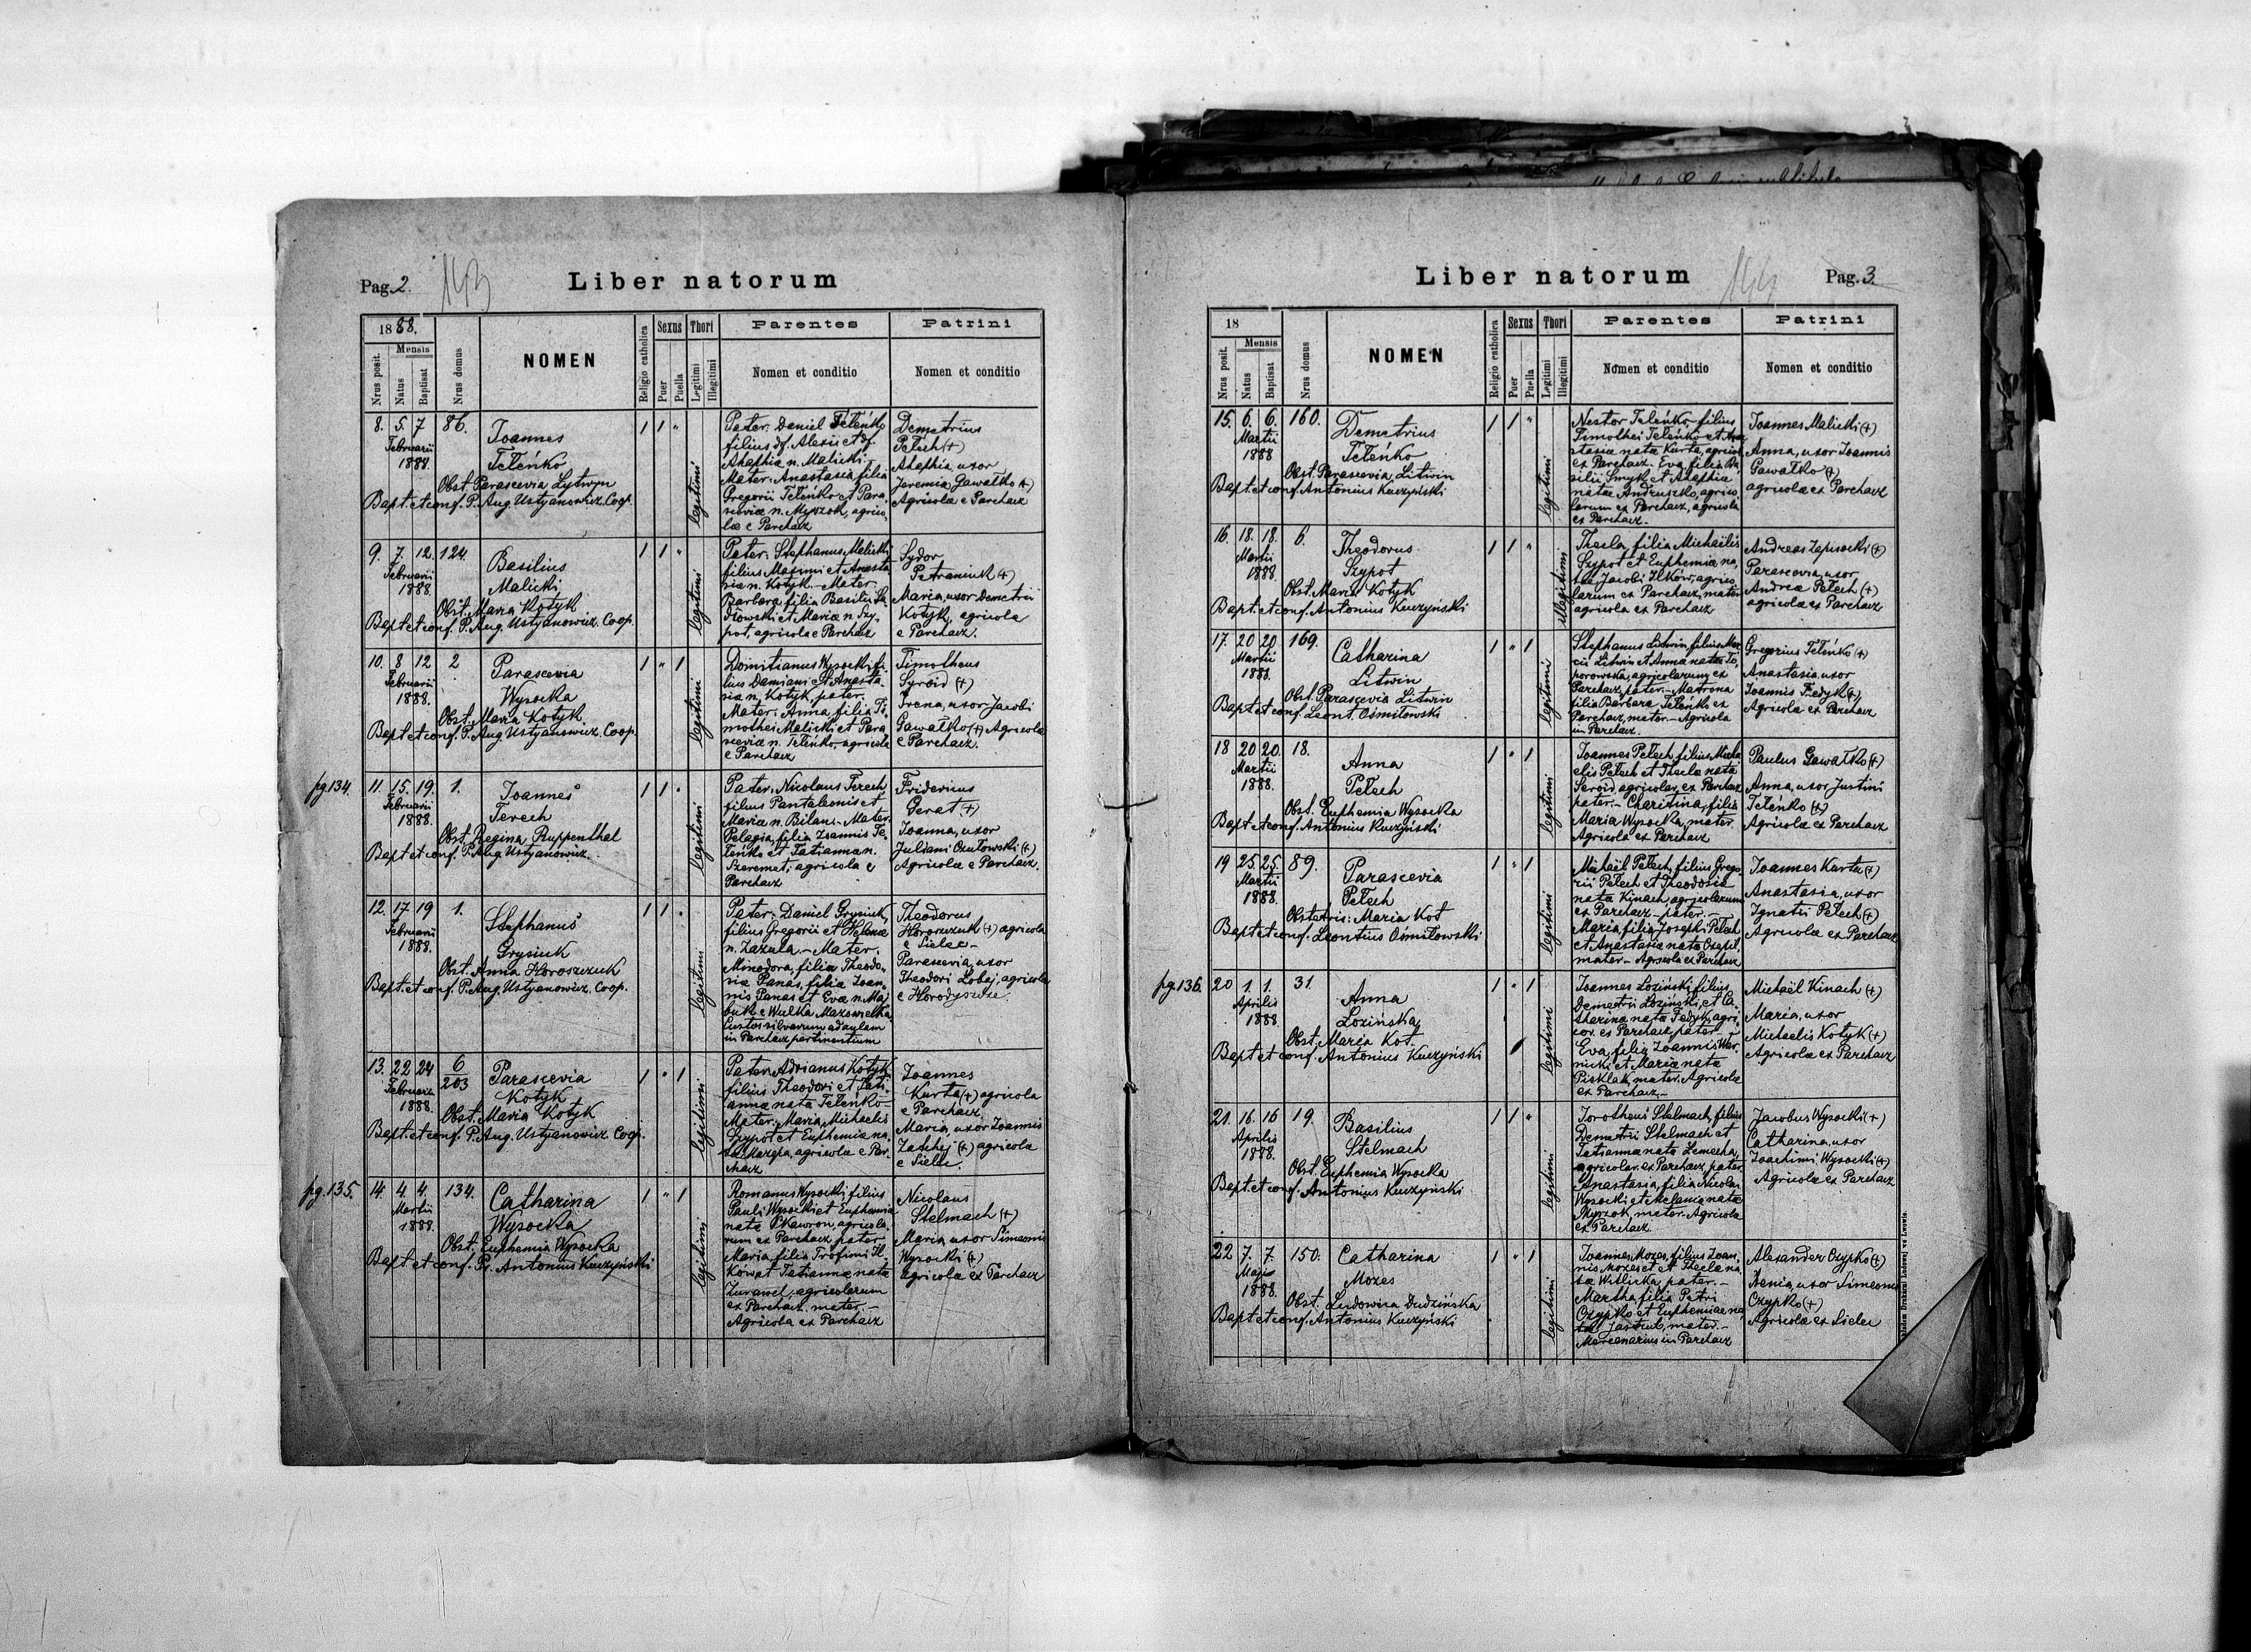 Pag. 2.
143
Liber natorum
1888.
Mensis
Nrus posit.
Natus
Baptisat
Nrus domus
NOMEN
Religio catholica
Sexus
Puer
Puella
Thori
Legitimi
Illegitimi
Parentes
Nomen et conditio
Patrini
Nomen et conditio
8. 5. 7 86.
Februarii
1888.
Joannes
Teleńko
Obst. Parascevia Lytwyn
Bapt. et conf. P. Aug. Ustyanowicz. Coop.
1 1 "
legitimi
Pater: Daniel Teleńko
filius df. Alexii et df.
Ahaphia n. Malicki.
Mater: Anastasia filia
Gregorii Teleńko et Para-
sceviae n. Myszok, agrico-
lae e Parchacz
Demetrius
Pełech (+)
Ahaphia, uxor
Jeremia Gawałko (+)
Agricolae e Parchacz
9. 7. 12. 124.
Februarii
1888.
Basilius
Malicki
Obst. Maria Kotyk
Bapt. et conf. P. Aug. Ustyanowicz. Coop.
1 1 "
legitimi
Pater: Stephanus Malicki
filius Maximi et Anasta
siae n. Kotyk. - Mater.
Barbara filia Basilii Sa-
dowski et Mariae n. Szy-
pot, agricolae Parchacz
Sydor
Petraniuk (+)
Maria, uxor Demetrii
Kotyk, agricola
e Parchacz.
10. 8 12 2
Februarii
1888.
Parascevia
Wysocka
Obst. Maria Kotyk
Bapt. et conf. P. Aug. Ustyanowicz. Coop.
1 " 1
legitimi
Domitianus Wysocki, fi-
lius Damiani et Anasta-
siae n. Kotyk, pater.
Mater. Anna, filia Ti-
mothei Malicki et Para
sceviae n. Teleńko, agricola
e Parchacz
Timotheus
Syroid (+)
Irena, uxor Jacobi
Gawałko (+) Agricolae
e Parchacz.
pg. 134.
11. 15. 19. 1.
Februarii
1888.
Joannes
Terech
Obst. Regina Ruppenthal
Bapt. et conf. P. Aug. Ustyanowicz.
1 1 "
legitimi
Pater. Nicolaus Terech
filius Pantaleonis et
Mariae n. Bilans. Mater.
Pelagia, filia Joannis Te-
leńko et Tatiannae n.
Szeremet, agricola e
Parchacz
Fridericus
Gerat (+)
Joanna, uxor
Juliani Osutowski (+)
Agricolae e Parchacz.
12. 17. 19 1.
Februarii
1888.
Stephanus
Grysiuk
Obst. Anna Horoszczuk
Bapt. et conf. P. Aug. Ustyanowicz. Coop.
1 1 "
legitimi
Pater: Daniel Grysiuk,
filius Gregorii et Helenae
n. Zazula. - Mater.
Minodora, filia Theodo-
siae Panas, filia Joan-
nis Panas et Evae n. Ma
buk e Wulka Mazowiecka
Custos silvarum ad aulam
in Parchacz pertinentium
Theodorus
Horoszczuk (+) agricola
e Sielec -
Parascevia, uxor
Theodori Łobej, agricola
e Horodyszcze.
13. 22 24 6/203
Februarii
1888.
Parascevia
Kotyk
Obst. Maria Kotyk
Bapt. et conf. P. Aug. Ustyanowicz Coop.
1 " 1
legitimi
Pater. Adrianus Kotyk
filius Theodori et Tati-
annae nata Teleńko
Mater. Maria Michaelis
Szypot et Euphemia na-
ta Mazepa, agricolae e Par-
chacz
Joannes
Kurta (+) agricola
e Parchacz
Maria, uxor Joannis
Zachej (+) agricola
e Sielec.
pg. 135.
14. 4. 4. 134.
Martii
1888.
Catharina
Wysocka
Obst. Euphemia Wysocka
Bapt. et conf. Pr. Antonius Kuczyński
1 " 1
legitimi
Romanus Wysocki, filius
Pauli Wysocki et Euphemia
nata Skawron, agricola-
rum ex Parchacz, pater
Maria filia Trofimi Il-
ków et Tatianna nata
Zurawel, agricolarum
ex Parchacz. mater. -
Agricola ex Parchacz
Nicolaus
Stelmach (+)
Maria, uxor Simeonis
Wysocki (+)
agricolae ex Parchacz
Liber natorum
144
Pag. 3.
18
Mensis
Nrus posit.
Natus
Baptisat
Nrus domus
NOMEN
Religio catholica
Sexus
Puer
Puella
Thori
Legitimi
Illegitimi
Parentes
Nomen et conditio
Patrini
Nomen et conditio
15. 6. 6. 160.
Martii
1888
Demetrius
Teleńko
Obst. Parascevia Litwin
Bapt. et conf. Antonius Kuczyński
1 1 "
legitimi
Nestor Teleńko, filius
Timothei Teleńko et Ana
stasia nata Kurta, agricol.
ex Parchacz. Eva, filia Ba
silii Smyk et Ahaphia
natae Andruszko, agrico-
larum ex Parchacz, agricola
ex Parchacz.
Joannes Malicki (+)
Anna, uxor Joannis
Gawałko (+)
agricolae ex Parchacz
16. 18. 18. 6.
Martii
1888.
Theodorus
Szypot
Obst. Maria Kotyk
Bapt. et conf. Antonius Kuczyński
1 1 "
illegitimi
Thecla, filia Michaëlis
Szypot et Euphemia na-
tae Jacobi Ilków, agrico-
larum ex Parchacz, mater
agricola ex Parchacz
Andreas Zapisocki (+)
Parascevia, uxor
Andrea Pełech (+)
agricolae ex Parchacz
17. 20 20 169.
Martii
1888.
Catharina
Litwin
Obst. Parascevia Litwin
Bapt. et conf. Leont. Ośmiłowski
1 " 1
legitimi
Stephanus Litwin, filius Mar-
cii Litwin et Anna nata To-
porowska, agricolarum ex
Parchacz, pater. - Matrona
filia Barbara Teleńko ex
Parchacz, mater. - Agricola
in Parchacz.
Gregorius Teleńko (+)
Anastasia, uxor
Joannis Fedyk (+),
Agricolae ex Parchacz
18 20 20. 18.
Martii
1888.
Anna
Pełech
Obst. Euphemia Wysocka
Bapt. et conf. Antonius Kuczyński
1 " 1
legitimi
Joannes Pełech, filius Micha
elis Pełech et Thecla nata
Seroid, agricolar. ex Parchacz
pater. - Charitina, filia
Maria Wysocka, mater.
Agricola ex Parchacz
Paulus Gawałko (+)
Anna, uxor Justini
Teleńko (+)
Agricolae ex Parchacz
19 25. 25. 89.
Martii
1888.
Parascevia
Pełech
Obstetris: Maria Kot
Bapt. et conf. Leontius Ośmiłowski
1 " 1
legitimi
Michaël Pełech, filius Grego-
rii Pełech et Theodosia
nata Kinach, agricolarum
ex Parchacz - pater. -
Maria, filia Josephi Pełech
et Anastasia nata Osepil,
mater - Agricola ex Parchacz
Joannes Kurta (+)
Anastasia, uxor
Ignatii Pełech (+)
Agricolae ex Parchacz
pg. 136.
20 1. 1. 31.
Aprilis
1888.
Anna
Łozińska
Obst. Maria Kot.
Bapt. et conf. Antonius Kuczyński
1 " 1
legitimi
Joannes Łoziński, filius
Demetrii Łoziński, et Ca-
tharina nata Fedyk, agri-
cor. ex Parchacz, pater -
Eva, filia Joannis War-
nicki et Maria nata
Pisklak, mater. Agricolae
ex Parchacz. -
Michaël Kinach (+)
Maria, uxor
Michaelis Kotyk (+)
Agricolae ex Parchacz
21. 16. 16 19.
Aprilis
1888.
Basilius
Stelmach
Obst. Euphemia Wysocka
Bapt. et conf. Antonius Kuczyński
1 1 "
legitimi
Dorotheus Stelmach, filius
Demetrii Stelmach et
Tatianna nata Lemecha,
agricolar. ex Parchacz, pater
Anastasia, filia Nicolai
Wysocki et Melania nata
Myszok, mater. Agricola
ex Parchacz.
Jacobus Wysocki (+)
Catharina, uxor
Joachimi Wysocki (+)
Agricolae ex Parchacz
22 7. 7. 150.
Majo
1888.
Catharina
Mozes
Obst. Ludovica Dudzińska
Bapt. et conf. Antonius Kuczyński
1 " 1
legitimi
Joannes Mozes, filius Joan-
nis Mozes et et Thecla na-
ta Witlicka, pater. -
Martha, filia Petri
Czypko et Euphemiae na-
ta Jastrub, mater. -
Mercenarius in Parchacz
Alexander Czypko (+)
Xenia, uxor Simeonis
Czypko (+)
Agricolae ex Sielec